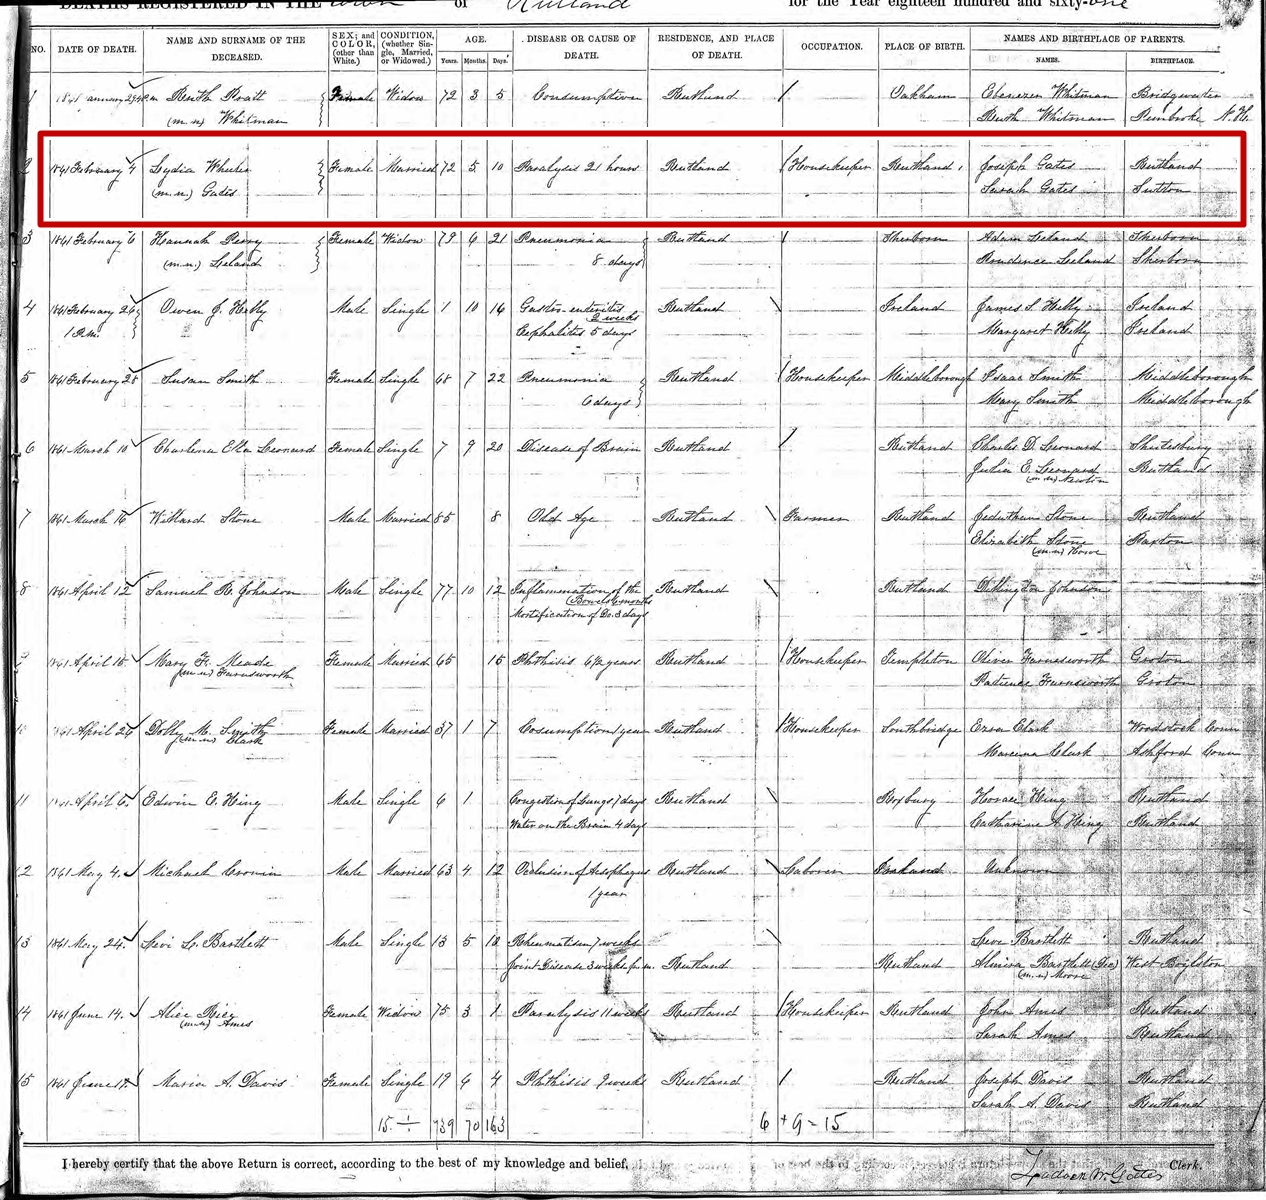 DEATHS REGISTERED IN THE Town of Rutland for the Year eighteen hundred and sixty-one
NO. DATE OF DEATH. NAME AND SURNAME OF THE DECEASED. SEX; and COLOR, (other than White.) CONDITION, (whether Single, Married, or Widowed.) AGE. Years. Months. Days. DISEASE OR CAUSE OF DEATH. RESIDENCE, AND PLACE OF DEATH. OCCUPATION. PLACE OF BIRTH. NAMES AND BIRTHPLACE OF PARENTS. NAMES. BIRTHPLACE.
1 1861 January Ruth Pratt Female Widow 72 3 5 Consumption Rutland Oakham Ebenezer Whitman Bridgewater
(m.n.) Whitman Ruth Whitman Pembroke N.H.
2 1861 February 4 Lydia Wheeler Female Married 72 5 10 Paralysis 21 hours Rutland Housekeeper Rutland Joseph Gates Rutland
(m.n.) Gates Sarah Gates Sutton
3 1861 February 6 Hannah Perry Female Widow 79 6 21 Pneumonia Rutland Sherborn Adam Leland Sherborn
(m.n.) Leland 8 days Prudence Leland Sherborn
4 1861 February 26 Owen J. Male Single 1 10 16 Gastro enteritis Rutland Ireland James S. Ireland
1 P.M. 2 weeks
Cephalites 5 days Margaret Ireland
5 1861 February 28 Susan Smith Female Single 68 7 22 Pneumonia Rutland Housekeeper Middleborough Isaac Smith Middleborough
6 days Mary Smith Middleborough
6 1861 March 10 Charlena Eta Leonard Female Single 7 9 20 Disease of Brain Rutland Rutland Charles D. Leonard Shutesbury
Julia E. Leonard Rutland
(m.n.) Newton
7 1861 March 16 Willard Stone Male Married 85 8 Old Age Rutland Farmer Rutland Jeduthun Stone Rutland
Elizabeth Stone Paxton
(m.n.) Howe
8 1861 April 12 Samuel R. Johnson Male Single 77 10 12 Inflammation of the Rutland Rutland Dillington Johnson
Bowels 6 months
Mortification of Do. 3 days
9 1861 April 15 Mary F. Meade Female Married 65 15 Phthisis 6 1/2 years Rutland Housekeeper Templeton Oliver Farnsworth Groton
(m.n.) Farnsworth Patience Farnsworth Groton
10 1861 April 26 Dolly M. Smith Female Married 37 1 7 Cosumption 1 year Rutland Housekeeper Southbridge Ezra Clark Woodstock Conn
(m.n.) Clark Marcena Clark Ashford Conn
11 1861 April 6. Edwin E. King Male Single 6 1 Congestion of Lungs 7 days Rutland Roxbury Horace King Rutland
Water on the Brain 4 days Catharine A. King Rutland
12 1861 May 4. Michael Cronin Male Married 63 4 12 Occlusion of Aesophagus Rutland Laborer Ireland Unknown
1 year
13 1861 May 24. Levi L. Bartlett Male Single 13 5 10 Rheumatism 7 weeks Levi Bartlett Rutland
Joint Disease 3 weeks Rutland Rutland Almira Bartlett West Boylston
(m.n.) Moore
14 1861 June 14. Alice Rice Female Widow 75 3 1 Paralysis 11 weeks Rutland Housekeeper Rutland John Ames Rutland
(m.n.) Ames Sarah Ames Rutland
15 1861 June 17. Maria A. Davis Female Single 19 6 4 Phthisis 9 weeks Rutland Rutland Joseph Davis Rutland
Sarah A. Davis Rutland
15 ÷ 739 70 163 6 + 9 = 15
I hereby certify that the above Return is correct, according to the best of my knowledge and belief,
W. Gates Clerk.